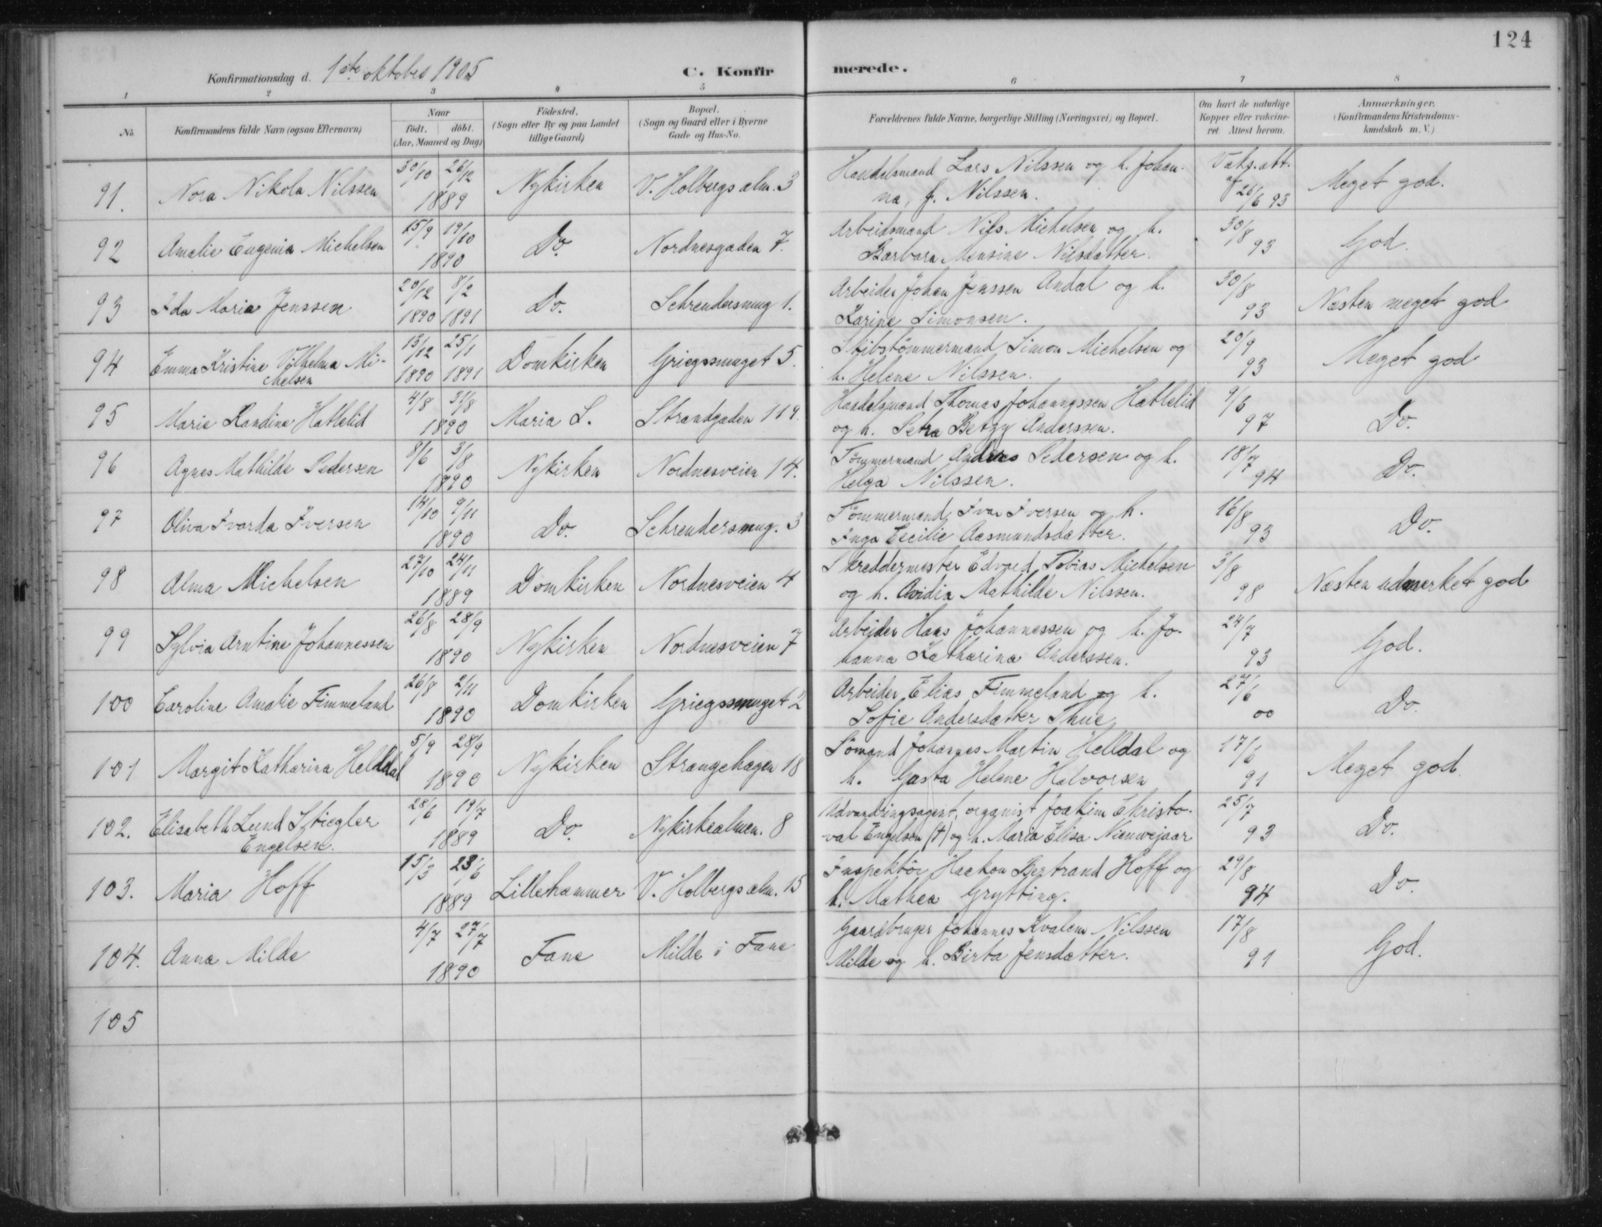 124
Konfirmationsdag d. 1ste oktober 1905
C. Konfirmerede.
1 2 3 4 5 6 7 8
No. Konfirmandens fulde Navn (ogsaa Efternavn) Naar født. døbt. (Aar, Maaned og Dag) Fødested. (Sogn eller By og paa Landet tillige Gaard) Bopæl. (Sogn og Gaard eller i Byerne Gade og Hus-No. Forældrenes fulde Navne, borgerlige Stilling (Næringsvei) og Bopæl. Om havt de naturlige Kopper eller vakcineret. Attest herom. Anmærkninger. (Konfirmandens Kristendomskundskab m. V.)
91. Nora Nikola Nilssen 30/10 26/12 1889 Nykirken V. Holbergs alm. 3 Handelsmand Lars Nilssen og h. Johan-
na, f. Nilssen. Vaks.att. af 26/6 93 Meget god.
92 Amalie Eugenia Michelsen 15/9 19/10 1890 Do. Nordnesgaden 7. Arbeidsmand Nils Michelsen og h.
Barbara Mensine Nilsdatter. 30/8 93 God.
93 Ida Maria Jenssen 20/12 1890 8/2 1891 Do. Schreudersmug 1. Arbeider Johan Jenssen Andal og h.
Karine Simonsen. 30/8 93 Næsten meget god
94 Emma Kristine Vilhelma Mi-
chelsen 13/12 1890 25/1 1891 Domkirken Griegssmuget 5. Skibstømmermand Simon Michelsen og
h. Helene Nilssen. 20/9 93 Meget god
95 Marie Randine Hatlelid 4/8 31/8 1890 Maria S. Strandgaden 119. Handelsmand Thomas Johannssen Hatlelid
og h. Petra Betzy Anderssen. 9/6 97 Do.
96 Agnes Mathilde Pedersen 8/6 3/8 1890 Nykirken Nordnesveien 14. Tømmermand Anders Pedersen og h.
Helga Nilssen. 18/7 94 Do.
97 Oliva Ivarda Iversen 14/10 9/11 1890 Do. Schreudersmug. 3 Tømmermand Ivar Iversen og h.
Inga Cecilie Aasmundsdatter. 16/8 93 Do.
98 Alma Michelsen 27/10 24/11 1889 Domkirken Nordnesveien 4 Skreddermester Edvard Tobias Michelsen
og h. Ovidia Mathilde Nilssen. 3/8 98 Næsten udmerket god
99 Sylvia Arntine Johannessen 26/8 28/9 1890 Nykirken Nordnesveien 7 Arbeider Hans Johannessen og h. Jo-
hanna Katharina Anderssen. 24/7 93 God.
100 Caroline Amalie Fimmeland 26/8 2/11 1890 Domkirken Griegssmuget 2 Arbeider Elias Fimmeland og h.
Sofie Andersdatter Thue 27/6 00 Do.
101 Margit Katharina Helldal 5/9 28/9 1890 Nykirken Strangehagen 18 Sømand Johannes Martin Helldal og
h. Gusta Helene Halvorsen 17/6 91 Meget god.
102. Elisabeth Lund Stiegler
Engelsen. 28/6 19/7 1889 Do. Nykirkealmen. 8 Udvandringsagent, organist Joakim Christo-
val Engelsen (†) og h. Maria Elisa Nieuwejaar 25/7 93 Do.
103. Maria Hoff 15/3 23/6 1889 Lillehammer V. Holbergs alm. 15 Inspektør Haakon Bertrand Hoff og
h. Mathea Grytting. 29/8 94 Do.
104. Anna Milde 4/7 27/7 1890 Fane Milde i Fane Gaardbruger Johannes Kvalem Nilssen
Milde og h. Birta Jensdatter. 17/8 91 God.
105